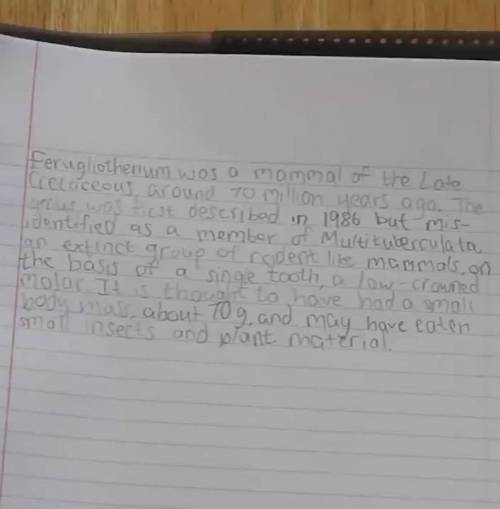 Ferugliotherium was a mammal of the Late
Cretaceous, around 70 million years ago. The
genus was first described in 1986 but mis-
identified as a member of Multituberculata,
an extinct group of rodent like mammals, on
the basis of a single tooth, a low-crowned
molar. It is thought to have had a small
body mass, about 70g, and may have eaten
small insects and plant material.